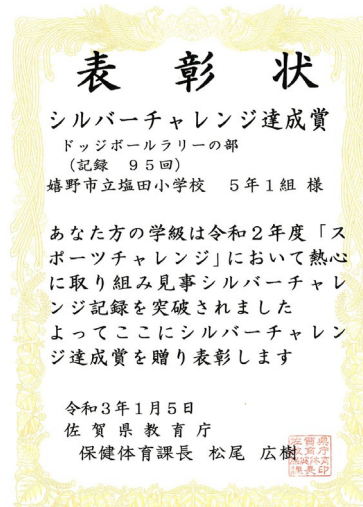 表彰状
シルバーチャレンジ達成賞
ドッジボールラリーの部
（記録　９５回）
嬉野市立塩田小学校　５年１組 様
あなた方の学級は令和２年度「ス
ポーツチャレンジ」において熱心
に取り組み見事シルバーチャレ
ンジ記録を突破されました
よってここにシルバーチャレン
ジ達成賞を贈り表彰します
令和３年１月５日
佐賀県教育庁
保健体育課長　松尾　広樹